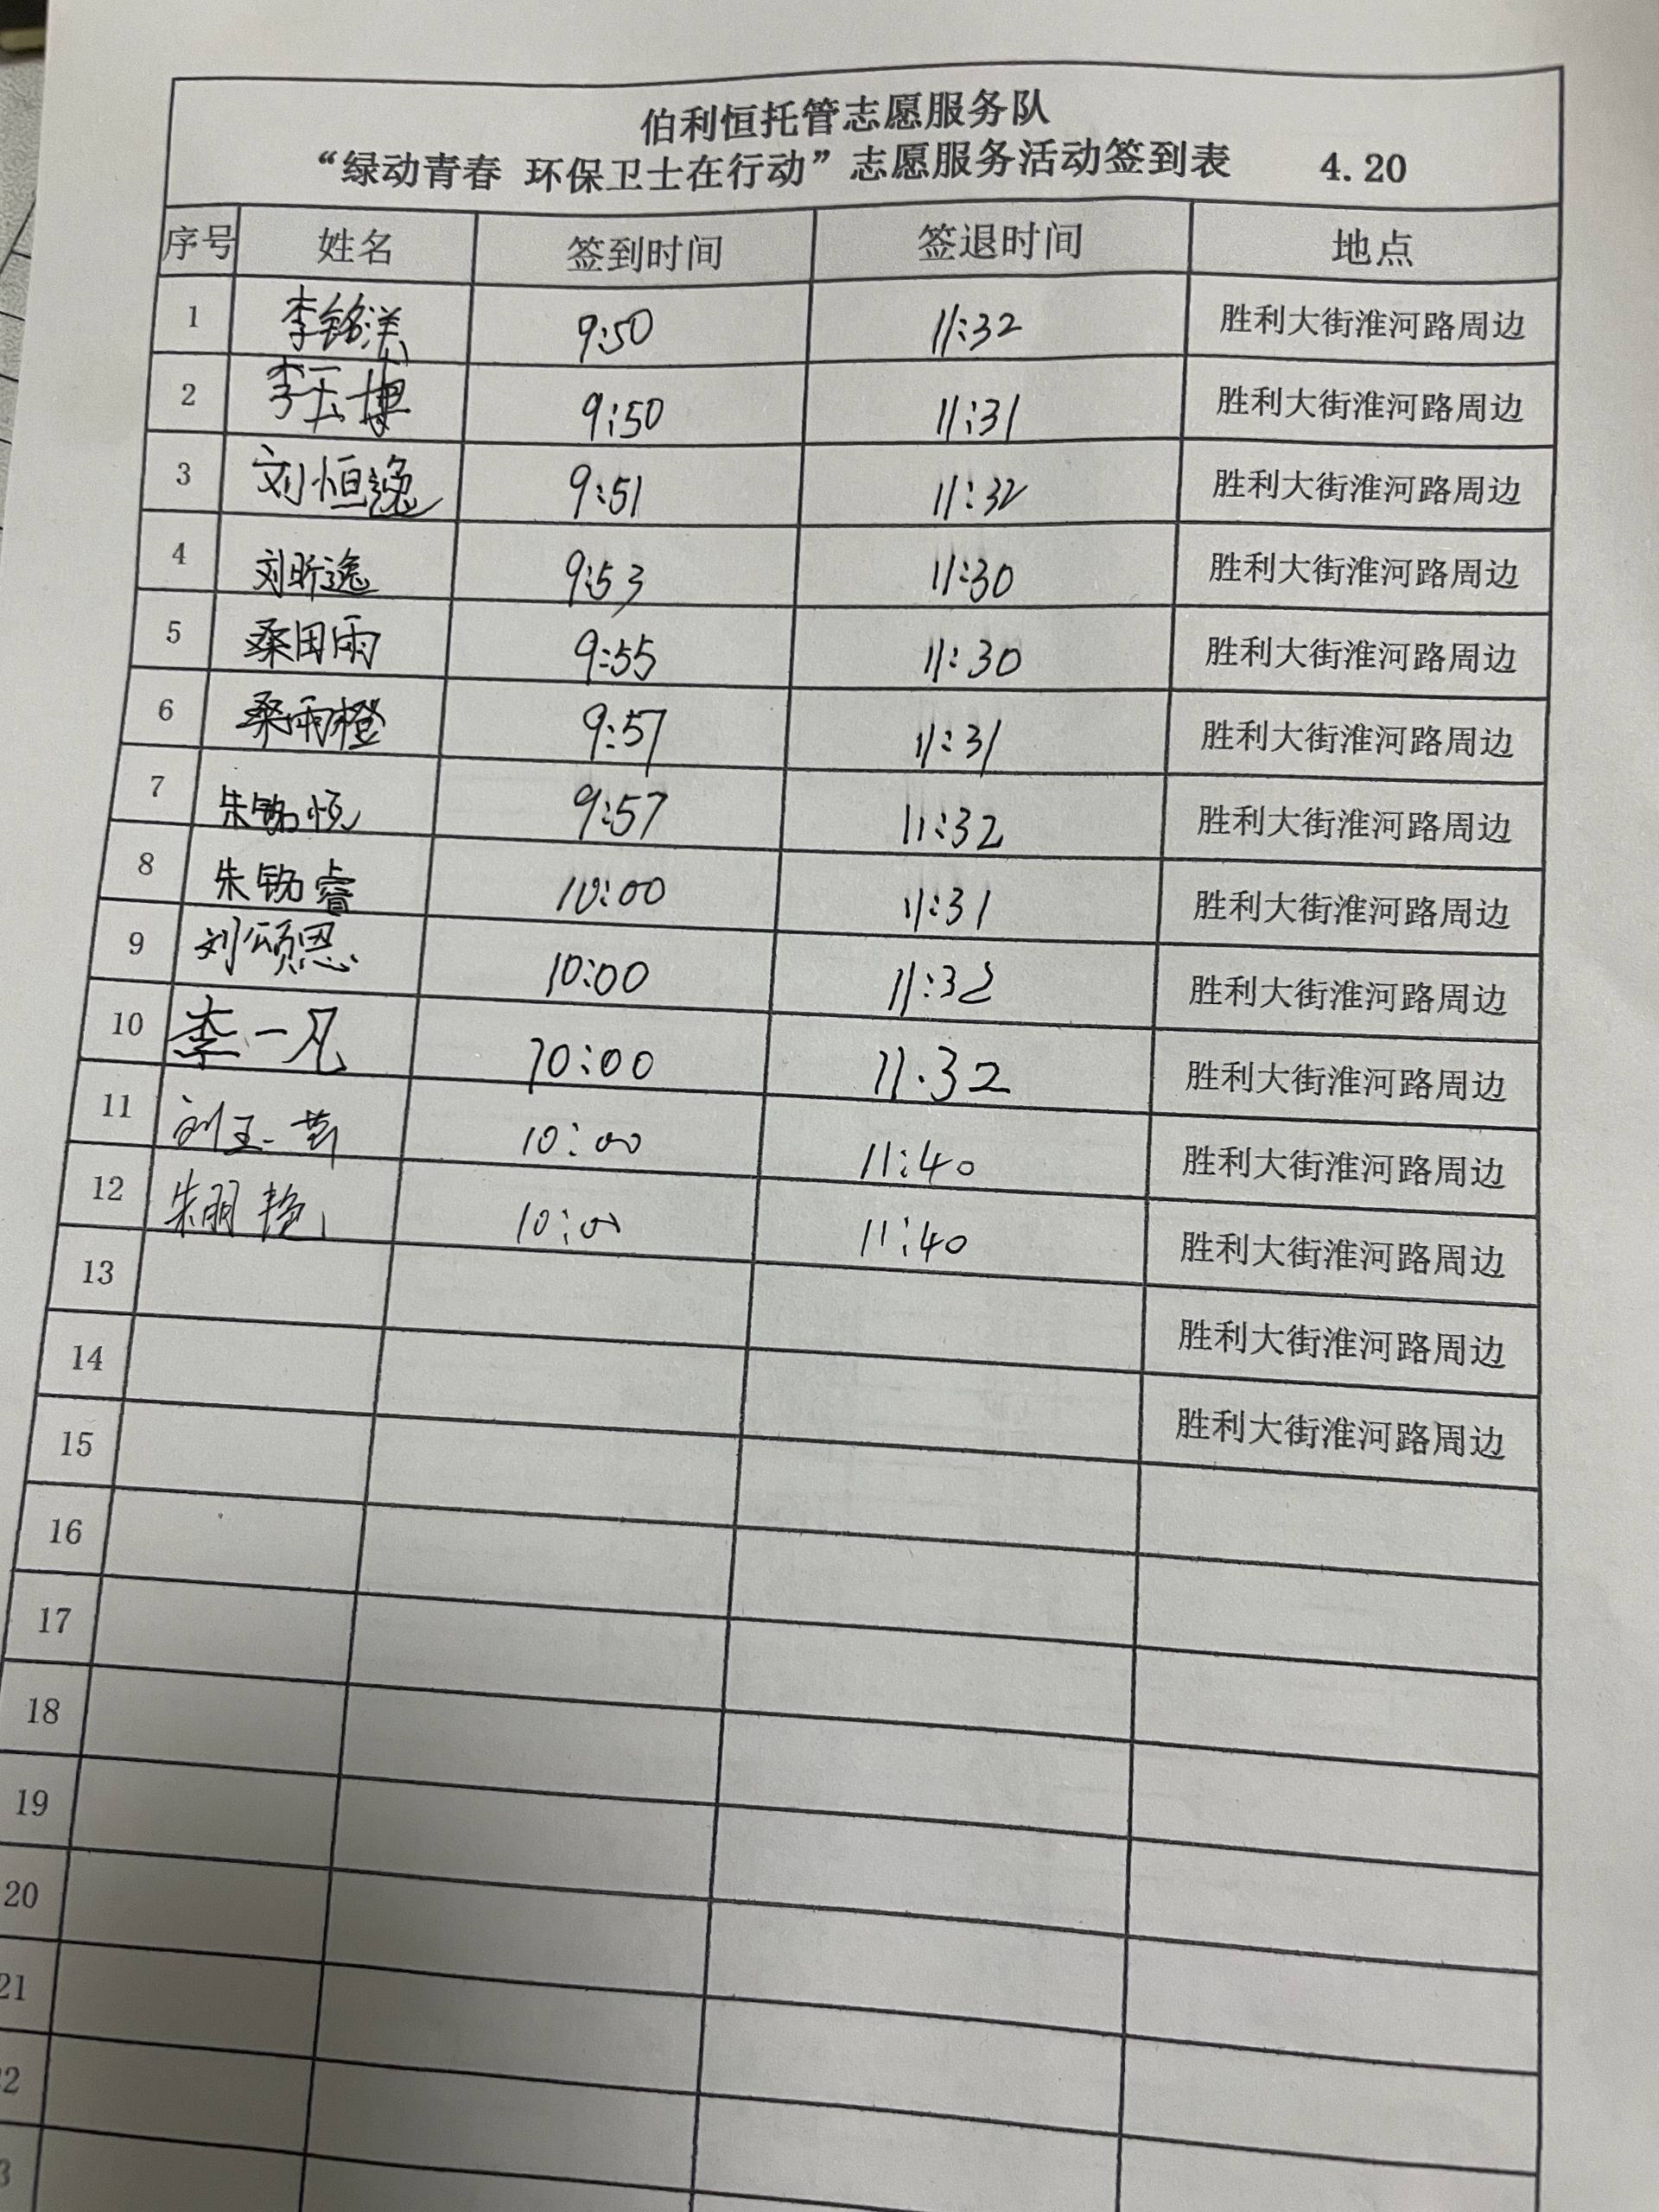 伯利恒托管志愿服务队
“绿动青春 环保卫士在行动”志愿服务活动签到表 4.20
序号 姓名 签到时间 签退时间 地点
1 李铭洋 9:50 11:32 胜利大街淮河路周边
2 李玉博 9:50 11:31 胜利大街淮河路周边
3 刘恒逸 9:51 11:32 胜利大街淮河路周边
4 刘昕逸 9:53 11:30 胜利大街淮河路周边
5 桑田雨 9:55 11:30 胜利大街淮河路周边
6 桑雨橙 9:57 11:31 胜利大街淮河路周边
7 9:57 11:32 胜利大街淮河路周边
8 10:00 11:31 胜利大街淮河路周边
9 刘颂恩 10:00 11:32 胜利大街淮河路周边
10 李一凡 10:00 11.32 胜利大街淮河路周边
11 10:00 11:40 胜利大街淮河路周边
12 朱丽艳 10:00 11:40 胜利大街淮河路周边
13 胜利大街淮河路周边
14 胜利大街淮河路周边
15
16
17
18
19
20
21